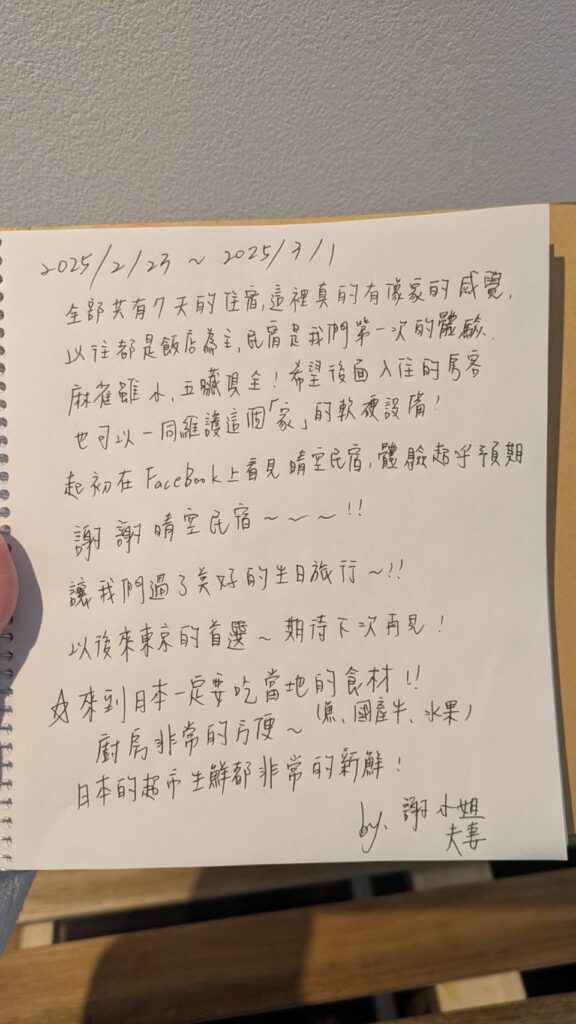 2025/2/23 ~ 2025/3/1
全部共有7天的住宿,這裡真的有像家的感覺,
以往都是飯店為主,民宿是我們第一次的體驗.
麻雀雖小,五臟俱全!希望後面入住的房客
也可以一同維護這個「家」的軟硬設備!
起初在FaceBook上看見晴空民宿,體驗超乎預期
謝謝晴空民宿~~~!!
讓我們過了美好的生日旅行~!!
以後來東京的首選~期待下次再見!
☆來到日本一定要吃當地的食材!!
廚房非常的方便~(魚、國產牛、水果)
日本的超市生鮮都非常的新鮮!
by. 謝小姐
夫妻